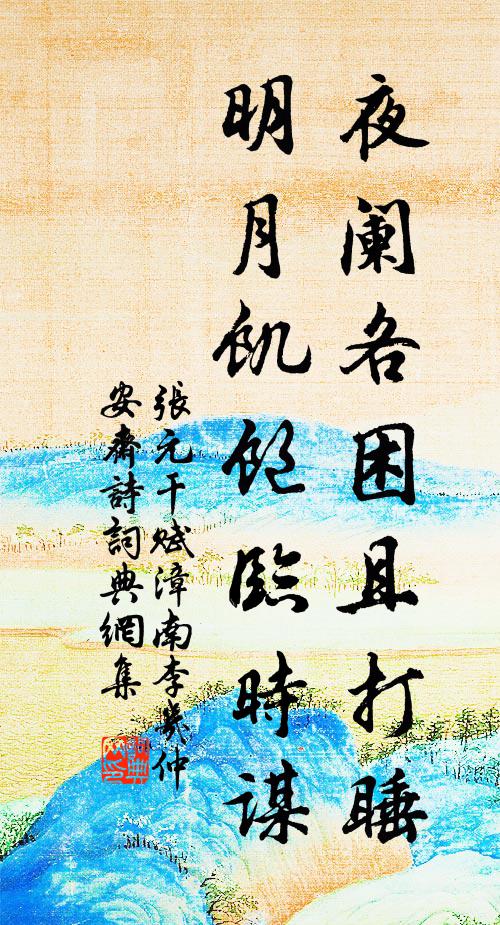 夜闌各困且打睡
明月飢飽臨時謀
張元干賦漳南李幾仲
安齋詩詞典網集